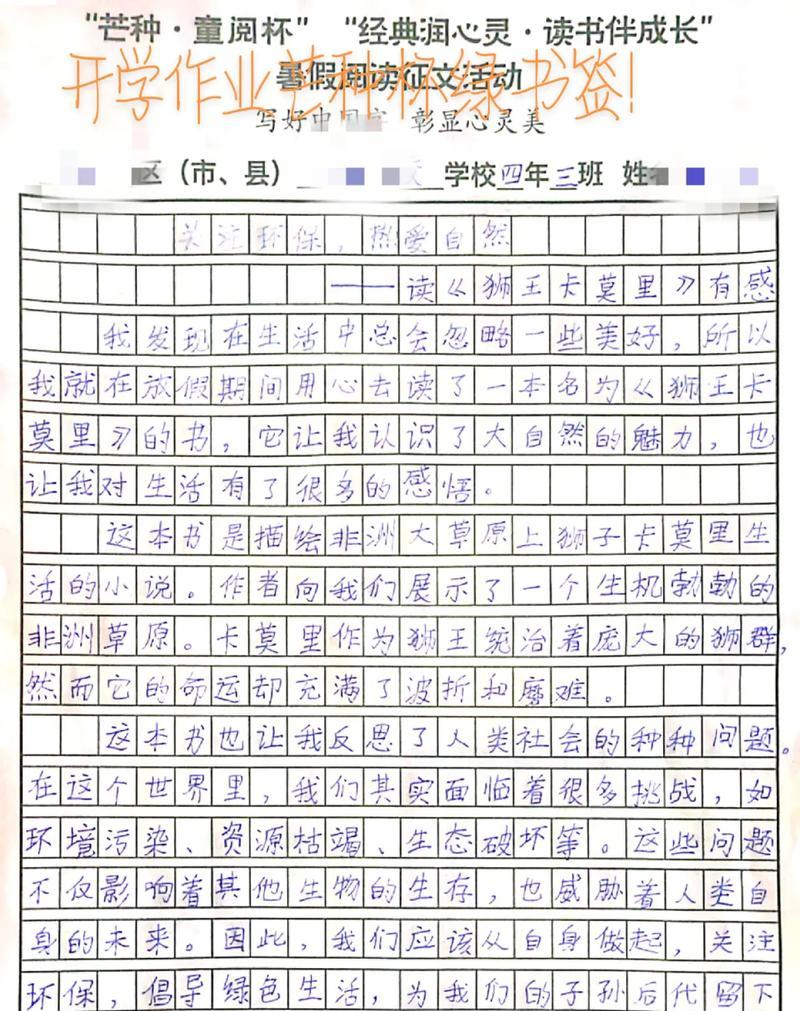 “芒种·童阅杯” “经典润心灵·读书伴成长”
暑假阅读征文活动
开学作业芒种杯绿书签!
写好中国字 彰显心灵美
区（市、县） 学校四年三班 姓
关注环保，热爱自然
——读《狮王卡莫里》有感
我发现在生活中总会忽略一些美好，所以
我就在放假期间用心去读了一本名为《狮王卡
莫里》的书，它让我认识了大自然的魅力，也
让我对生活有了很多的感悟。
这本书是描绘非洲大草原上狮子卡莫里生
活的小说。作者向我们展示了一个生机勃勃的
非洲草原。卡莫里作为狮王统治着庞大的狮群，
然而它的命运却充满了波折和磨难。
这本书也让我反思了人类社会的种种问题。
在这个世界里，我们其实面临着很多挑战，如
环境污染、资源枯竭、生态破坏等。这些问题
不仅影响着其他生物的生存，也威胁着人类自
身的未来。因此，我们应该从自身做起，关注
环保，倡导绿色生活，为我们的子孙后代留下